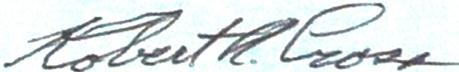 Robert R. Cross